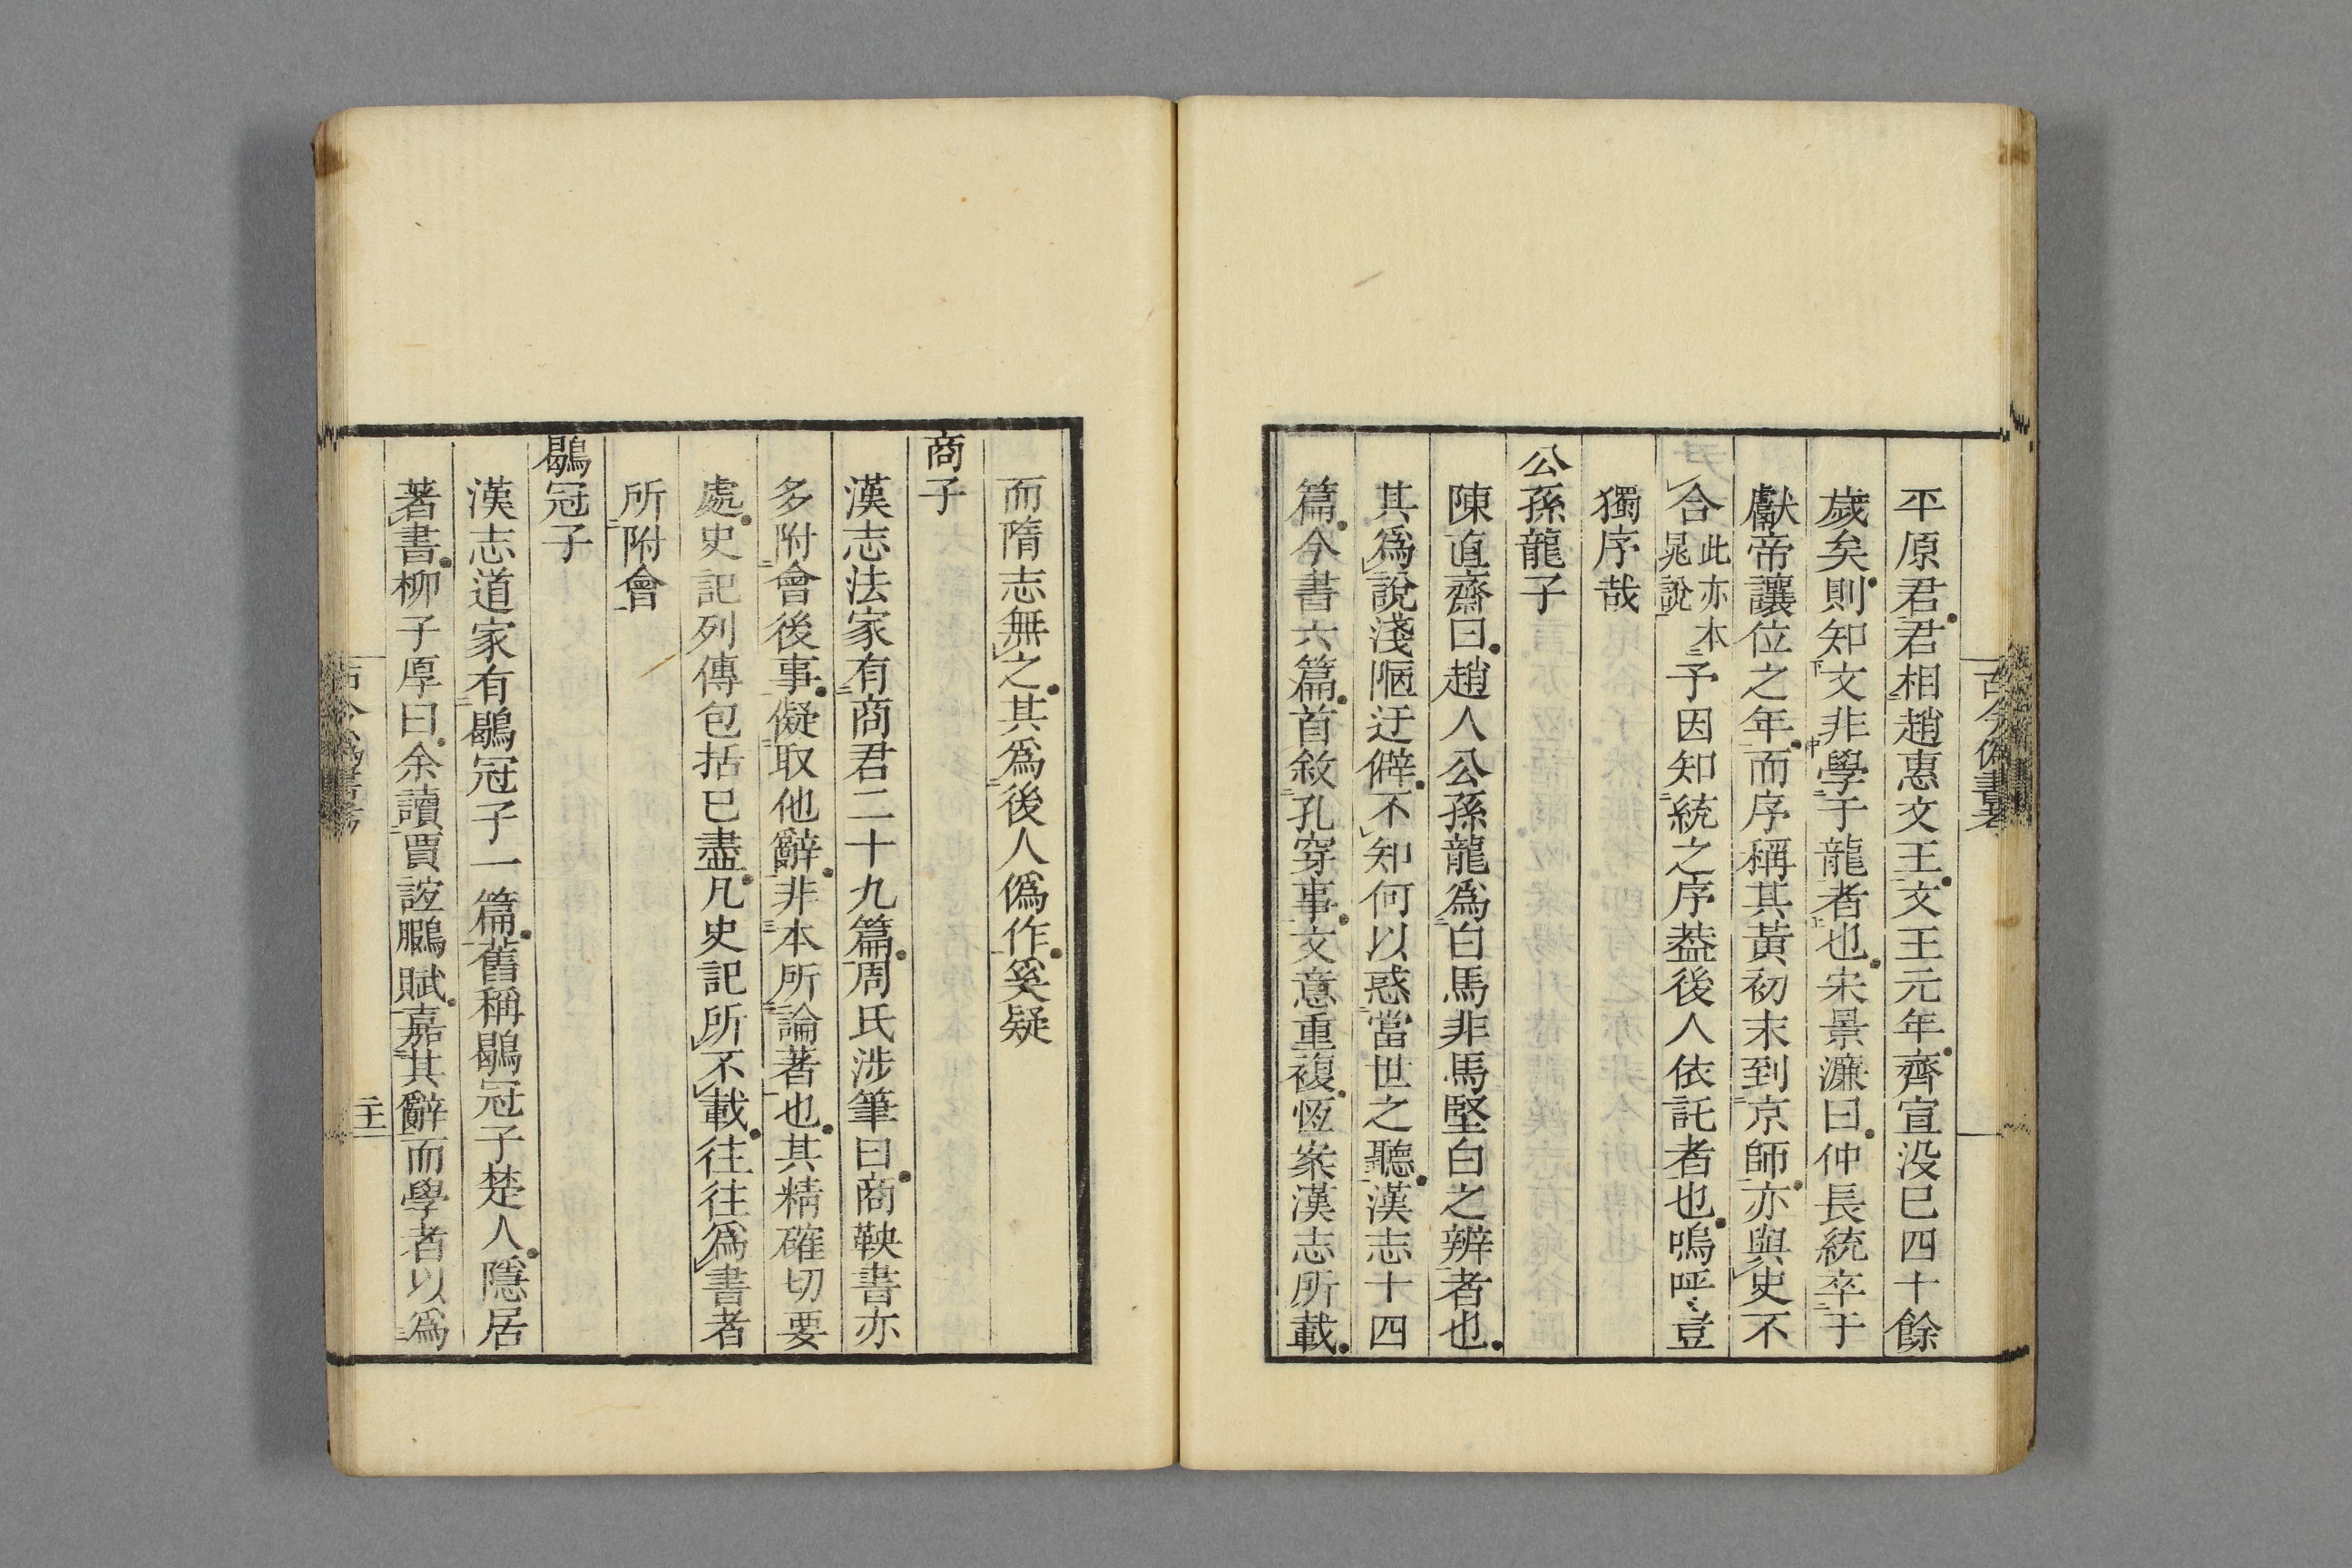 古今偽書考
平原君君相趙惠文王文王元年齊宣没已四十餘
歲矣則知文非學于龍者也宋景濂曰仲長統卒于
獻帝讓位之年而序稱其黃初末到京師亦與史不
合此亦本晁說予因知統之序葢後人依託者也嗚呼豈
獨序哉
公孫龍子
陳直齋曰趙人公孫龍爲白馬非馬堅白之辨者也
其爲說淺陋迂僻不知何以惑當世之聽漢志十四
篇今書六篇首敘孔穿事文意重複恆案漢志所載
而隋志無之其爲後人僞作奚疑
商子
漢志法家有商君二十九篇周氏涉筆曰商鞅書亦
多附會後事儗取他辭非本所論著也其精確切要
處史記列傳包括已盡凡史記所不載往往爲書者
所附會
鶡冠子
漢志道家有鶡冠子一篇舊稱鶡冠子楚人隱居
著書柳子厚曰余讀賈誼鵩賦嘉其辭而學者以爲